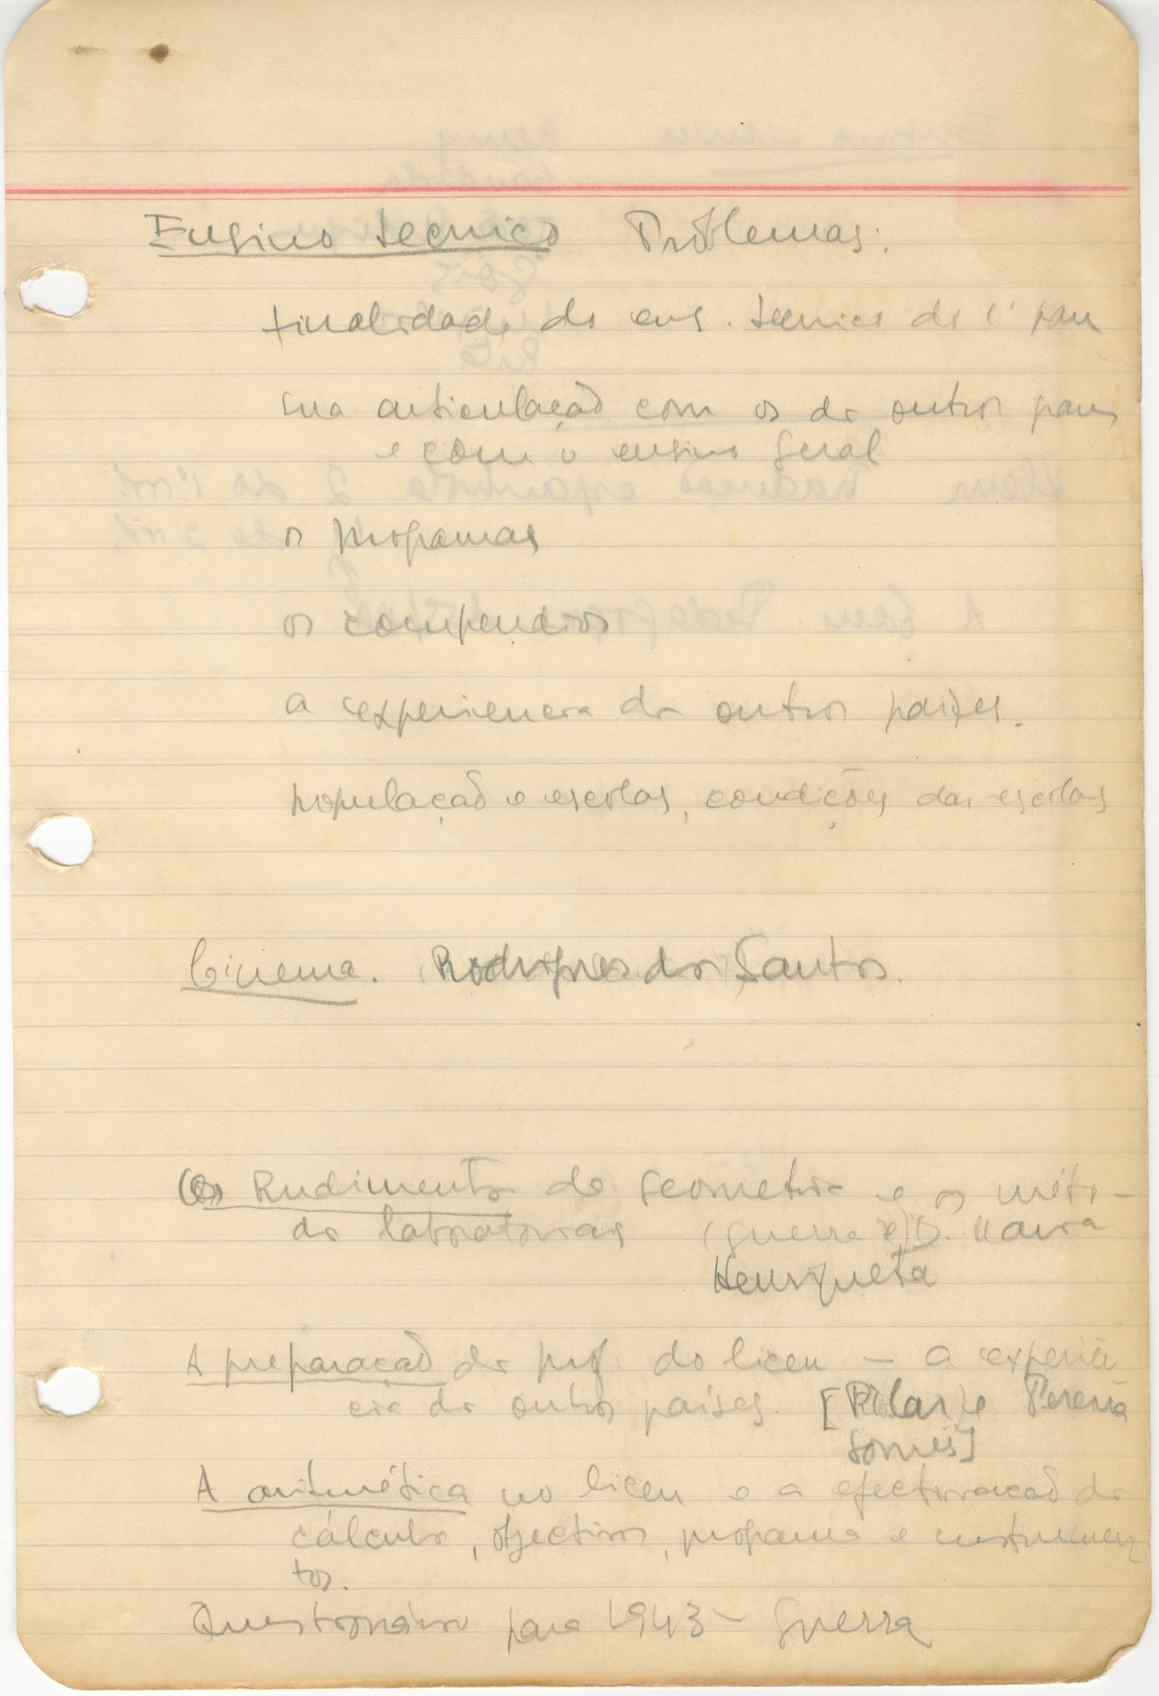 Ensino tecnico Problemas:
finalidade do ens. tecnico do 1º grau
sua articulação com os de outros graus
e com o ensino geral
os programas
os compendios
a experiencia de outros países.
população e escolas, condições das escolas
Cinema. Rodrigues dos Santos.
Rudimentos de Geometria e os méto-
dos laboratoriais (Guerra e) D. Maria
Henriqueta
A preparação do prof. do liceu – a experiên
cia de outros países. [Pilar e Pereira
Gomes]
A aritmética no liceu e a efectivação do
cálculo, objectivos, programa e instrumen
tos.
Questionário para 1943 – Guerra